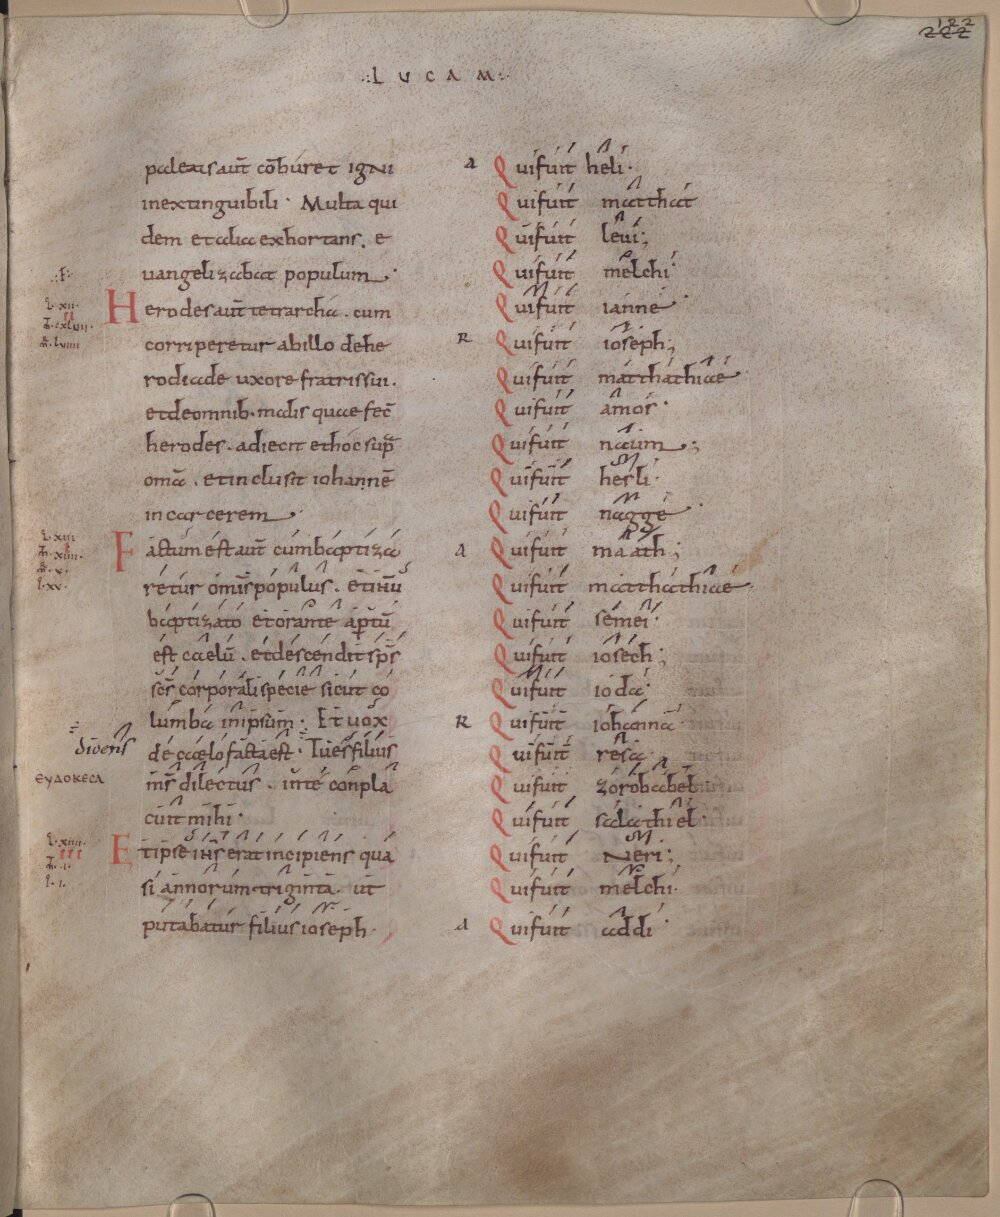 122
222
LUCAM
paleas aut̄ cōburet igni
inextinguibili · Multa qui
dem et alia exhortans . e
uangelizabat populum ·
Herodes aut̄ tetrarcha . cum
corriperetur ab illo de he
rodiade uxore fratris sui .
et de omnib · malis quae fec̄
herodes . adiecit et hoc sup̄
om̄a . et inclusit iohannē
in carcerem ·
Factum est aut̄ cum baptiza
retur om̄is populus . et ih̄u
baptizato et orante apertū
est caelū . et descendit sp̄s
sc̄s corporali specie sicut co
lumba in ipsum · Et uox
dicens
de caelo facta est · Tu es filius
ΕΥΔΟΚΕСΑ
m̄s dilectus . in te conpla
cuit mihi ·
Et ipse ih̄s erat incipiens qua
si annorum triginta . ut
putabatur filius ioseph ·
A
Qui fuit heli ·
Qui fuit matthat
Qui fuit leui ;
Qui fuit melchi
Qui fuit ianne ·
R
Qui fuit ioseph ;
Qui fuit matthathiae
Qui fuit amos ·
Qui fuit naum ;
Qui fuit hesli ·
Qui fuit nagge ·
A
Qui fuit maath ;
Qui fuit matthathiae ·
Qui fuit semei ·
Qui fuit iosech ;
Qui fuit ioda ·
R
Qui fuit iohanna ·
Qui fuit resa ·
Qui fuit zorobabel ·
Qui fuit salathiel ·
Qui fuit neri ;
Qui fuit melchi ·
A
Qui fuit addi ·